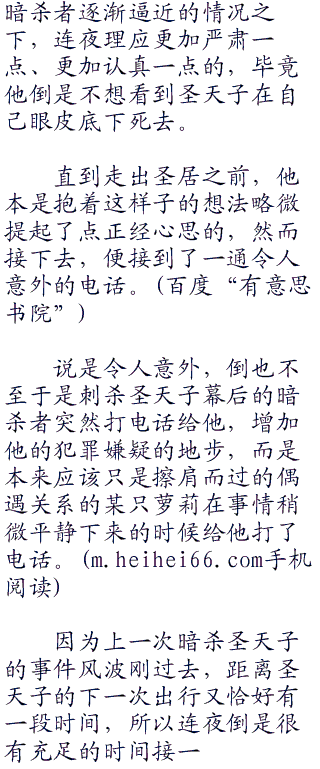 暗杀者逐渐逼近的情况之
下，连夜理应更加严肃一
点、更加认真一点的，毕竟
他倒是不想看到圣天子在自
己眼皮底下死去。
直到走出圣居之前，他
本是抱着这样子的想法略微
提起了点正经心思的，然而
接下去，便接到了一通令人
意外的电话。(百度“有意思
书院”)
说是令人意外，倒也不
至于是刺杀圣天子幕后的暗
杀者突然打电话给他，增加
他的犯罪嫌疑的地步，而是
本来应该只是擦肩而过的偶
遇关系的某只萝莉在事情稍
微平静下来的时候给他打了
电话。(m.heihei66.com手机
阅读)
因为上一次暗杀圣天子
的事件风波刚过去，距离圣
天子的下一次出行又恰好有
一段时间，所以连夜倒是很
有充足的时间接一